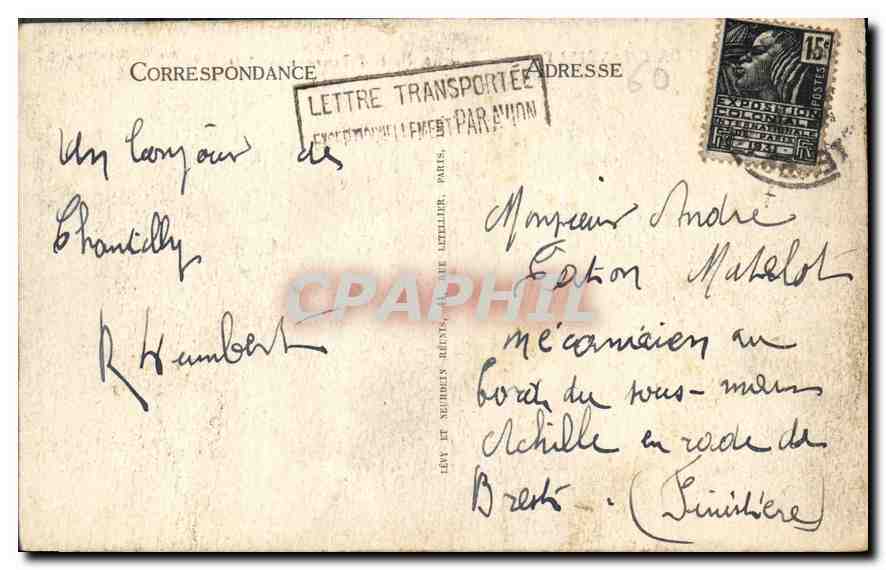 CORRESPONDANCE
ADRESSE
LETTRE TRANSPORTÉE
EXCEPTIONNELLEMENT PAR AVION
60
15c
POSTES
EXPOSITION
COLONIALE
INTERNATIONALE
DE PARIS
1931
Un bonjour de
Chantilly
R Humbert
LÉVY ET NEURDEIN RÉUNIS, 44 RUE LETELLIER, PARIS,
CPAPHIL
Monsieur André
Matelot
mécanicien au
bord du sous-marin
Achille en rade de
Brest. (Finistère)